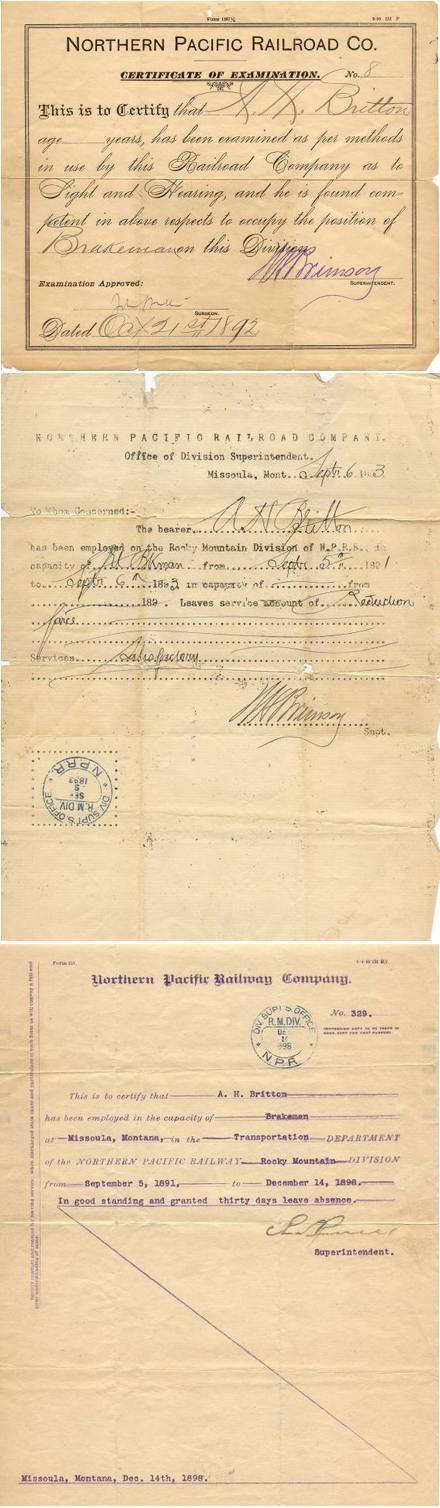 NORTHERN PACIFIC RAILROAD CO.
CERTIFICATE OF EXAMINATION. No. 8
This is to Certify that A. H. Britton
age years, has been examined as per methods
in use by this Railroad Company as to
Sight and Hearing, and he is found com-
petent in above respects to occupy the position of
Brakeman on this Division
W Brimson
Examination Approved:
SUPERINTENDENT.
SURGEON.
Dated Oct 21st 1892
NORTHERN PACIFIC RAILROAD COMPANY.
Office of Division Superintendent.
Missoula, Mont. Septr. 6 1893
To Whom Concerned:-
The bearer A H Britton
has been employed on the Rocky Mountain Division of N.P.R.R., in
capacity of Bkman from Septr 5th 1891
to Septr 6th 1893 in capacity of from
189 . Leaves service account of Reduction
force
Services satisfactory
W Brimson
Supt.
DIV. SUPT'S OFFICE
R.M DIV.
SEP
1893
N.P.R.R.
Northern Pacific Railway Company.
No. 329.
DIV. SUPT'S. OFFICE
R.M.DIV.
DE
14
898
N.P.R.
This is to certify that A. H. Britton
has been employed in the capacity of Brakeman
at Missoula, Montana, in the Transportation DEPARTMENT
of the NORTHERN PACIFIC RAILWAY Rocky Mountain DIVISION
from September 5, 1891, to December 14, 1898.
In good standing and granted thirty days leave absence.
Superintendent.
Missoula, Montana, Dec. 14th, 1898.